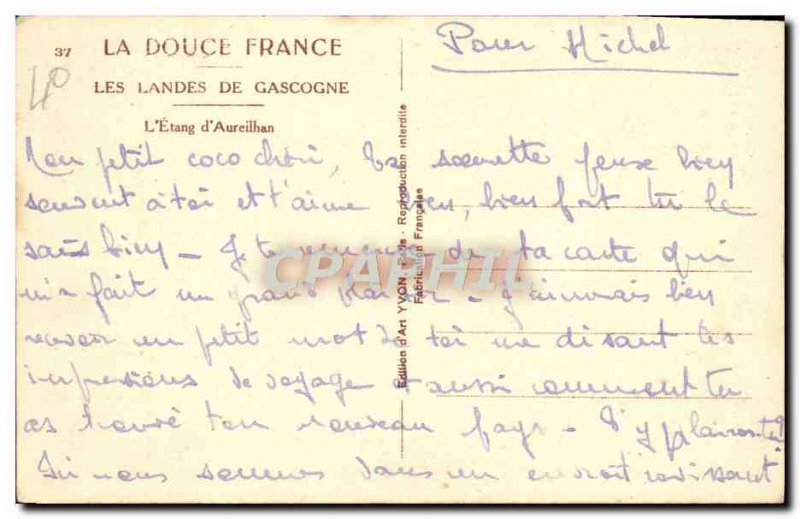 37 LA DOUCE FRANCE
LES LANDES DE GASCOGNE
L'Étang d'Aureilhan
40
Pour Michel
Mon petit coco chéri, ta sœurette pense bien
souvent à toi et t'aime bien, bien fort tu le
sais bien – Je te remercie de ta carte qui
m'a fait un grand plaisir – J'aimerais bien
recevoir un petit mot de toi me disant tes
impressions de voyage et aussi comment tu
as trouvé ton nouveau pays – T'y plairas-tu?
Ici nous sommes dans un endroit ravissant
Edition d'Art YVON, Paris - Reproduction interdite
Fabrication Française
CPAPHIL